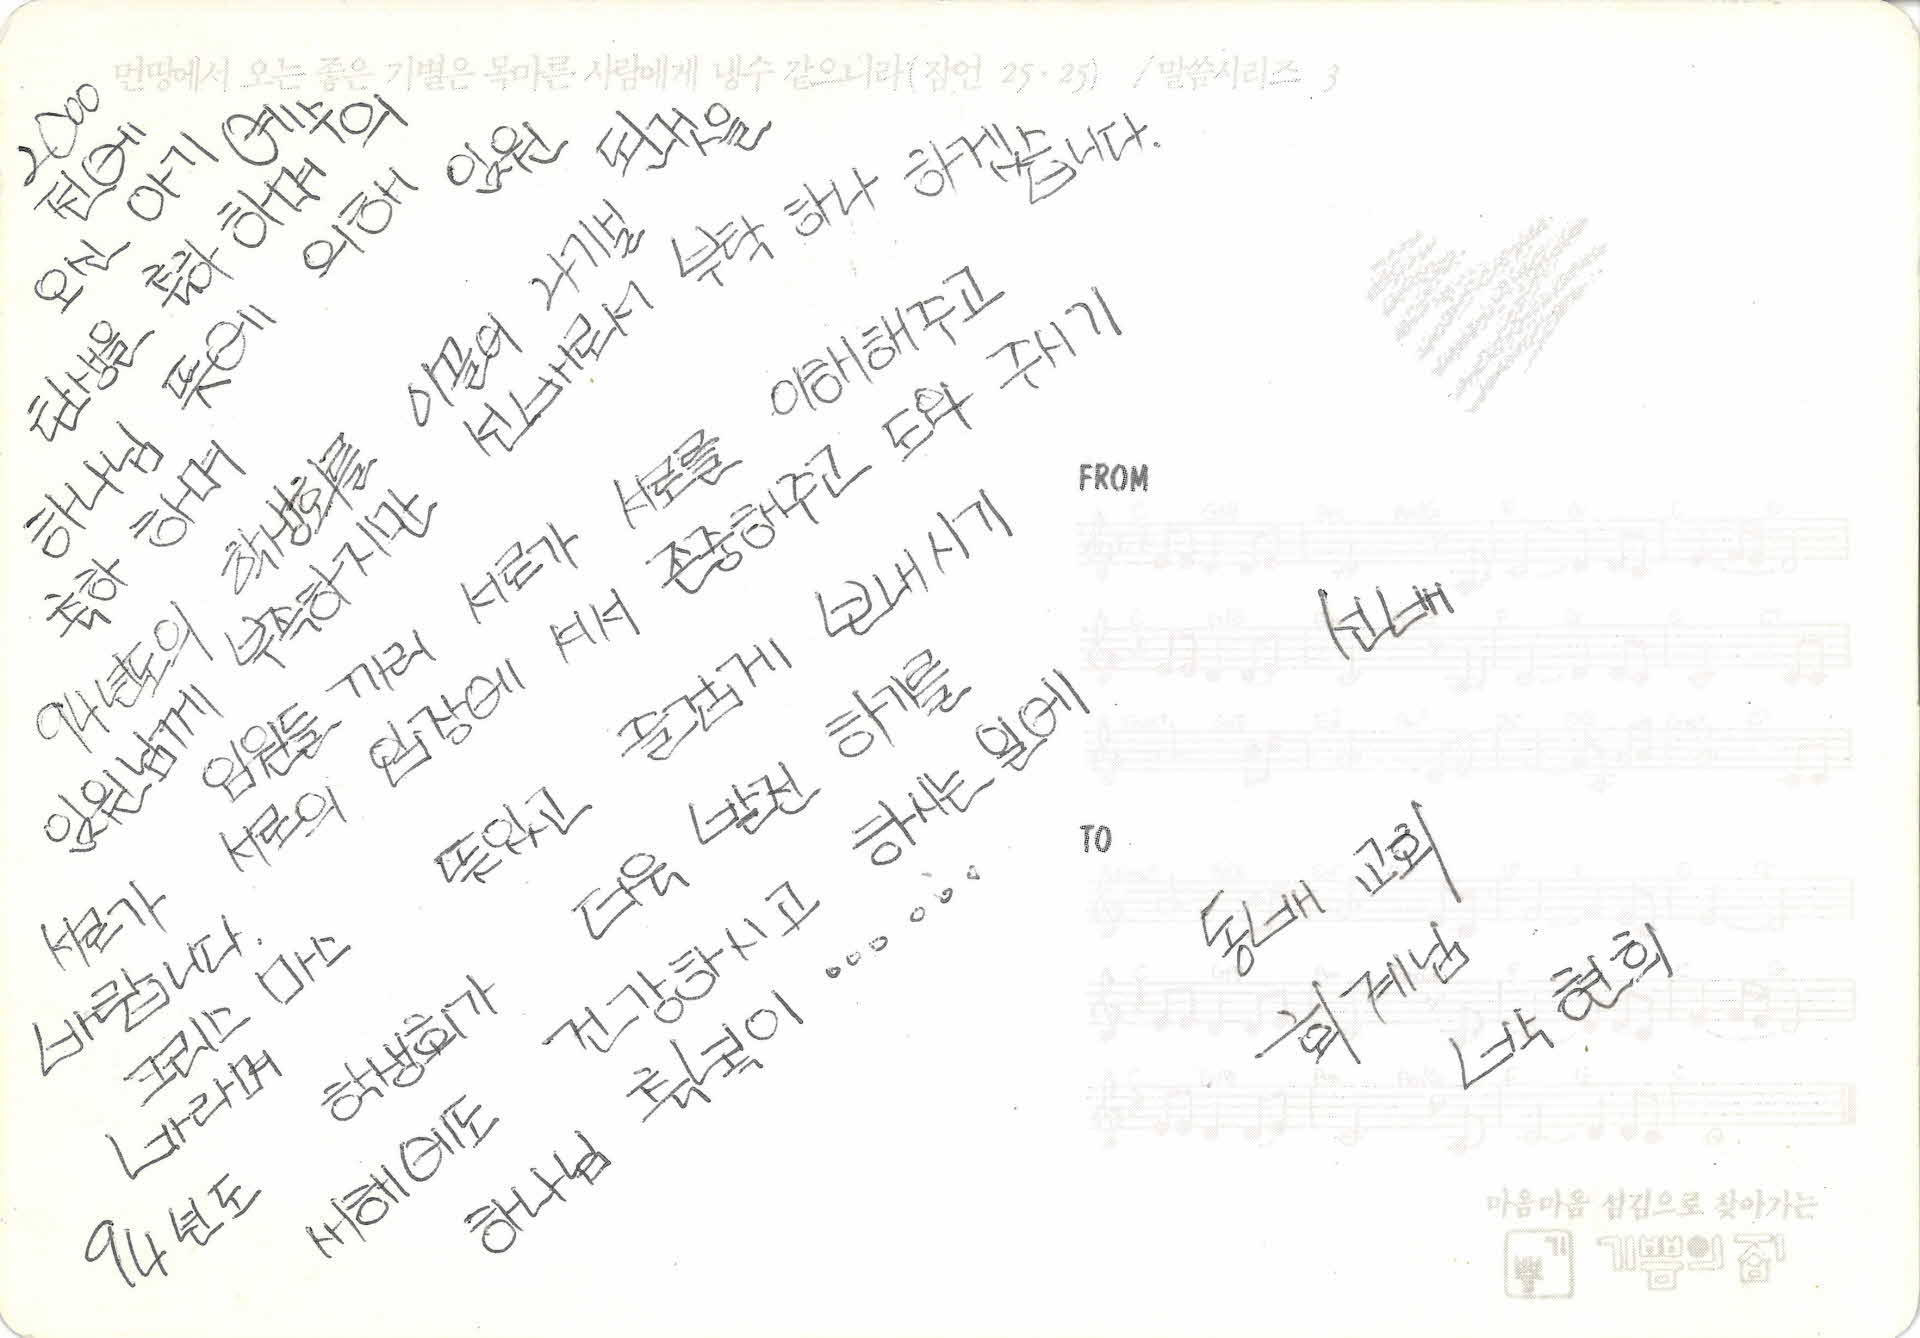 먼땅에서 오는 좋은 기별은 목마른 사람에게 냉수 같으니라(잠언 25·25) /말씀시리즈 3
2000
전에
오신 아기 예수의
탄생을 축하 하며
하나님 뜻에 의해 임원 되심을
축하 하며
94년도의 학생회를 이끌어 나가실
임원님께 부족하지만 선배로서 부탁 하나 하겠습니다.
서로가 임원들 끼리 서로가 서로를 이해해주고
서로의 입장에 서서 존중해주고 도와 주시기
바랍니다.
크리스 마스 뜻있고 즐겁게 보내시기
바라며
94년도 학생회가 더욱 발전 하기를
새해에도 건강하시고 하시는 일에
하나님 축복이 ··········
FROM
선배
TO
동배 교회
회계님
박현희
마음마음 섬김으로 찾아가는